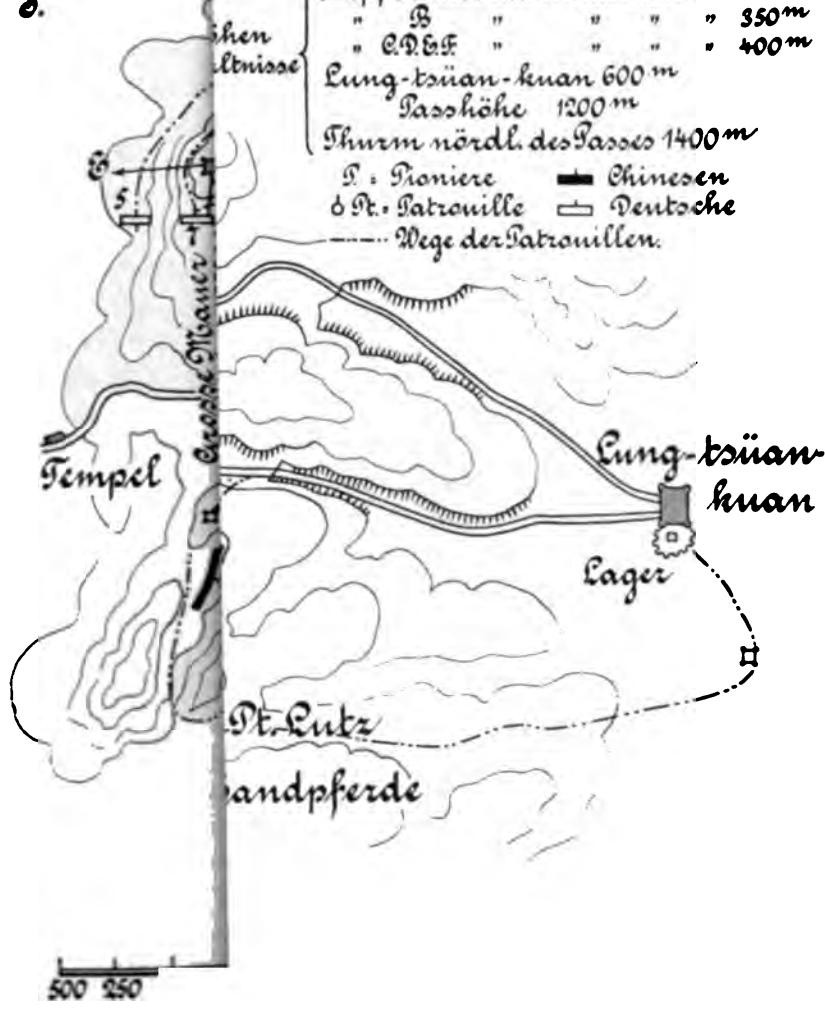 " B " " " " 350 m
" C.D.E.F. " " " " 400 m
Lung-tsüan-kuan 600 m
Passhöhe 1200 m
Thurm nördl. des Passes 1400 m
P. = Pioniere Chinesen
Pt. = Patrouille Deutsche
Wege der Patrouillen.
5.
4
Grosse Mauer
Tempel
Lung-tsüan-
kuan
Lager
Pt. Lutz
andpferde
500 250